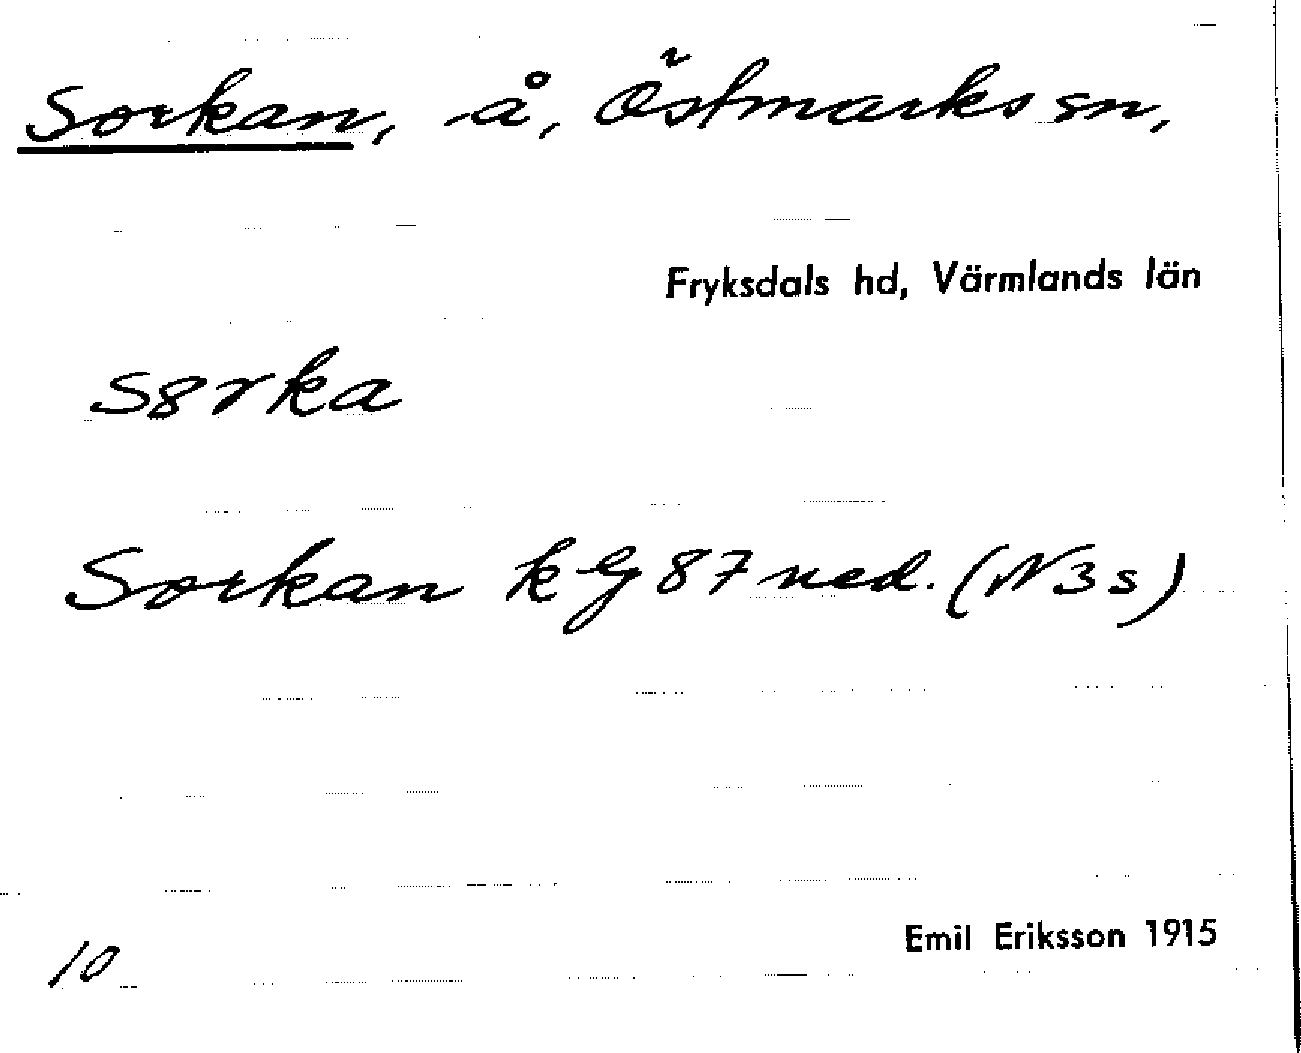 Sorkan, å, Östmarks sn,
Fryksdals hd, Värmlands län
s8rka
Sorkan kG 87 ned. (N3s)
Emil Eriksson 1915
10